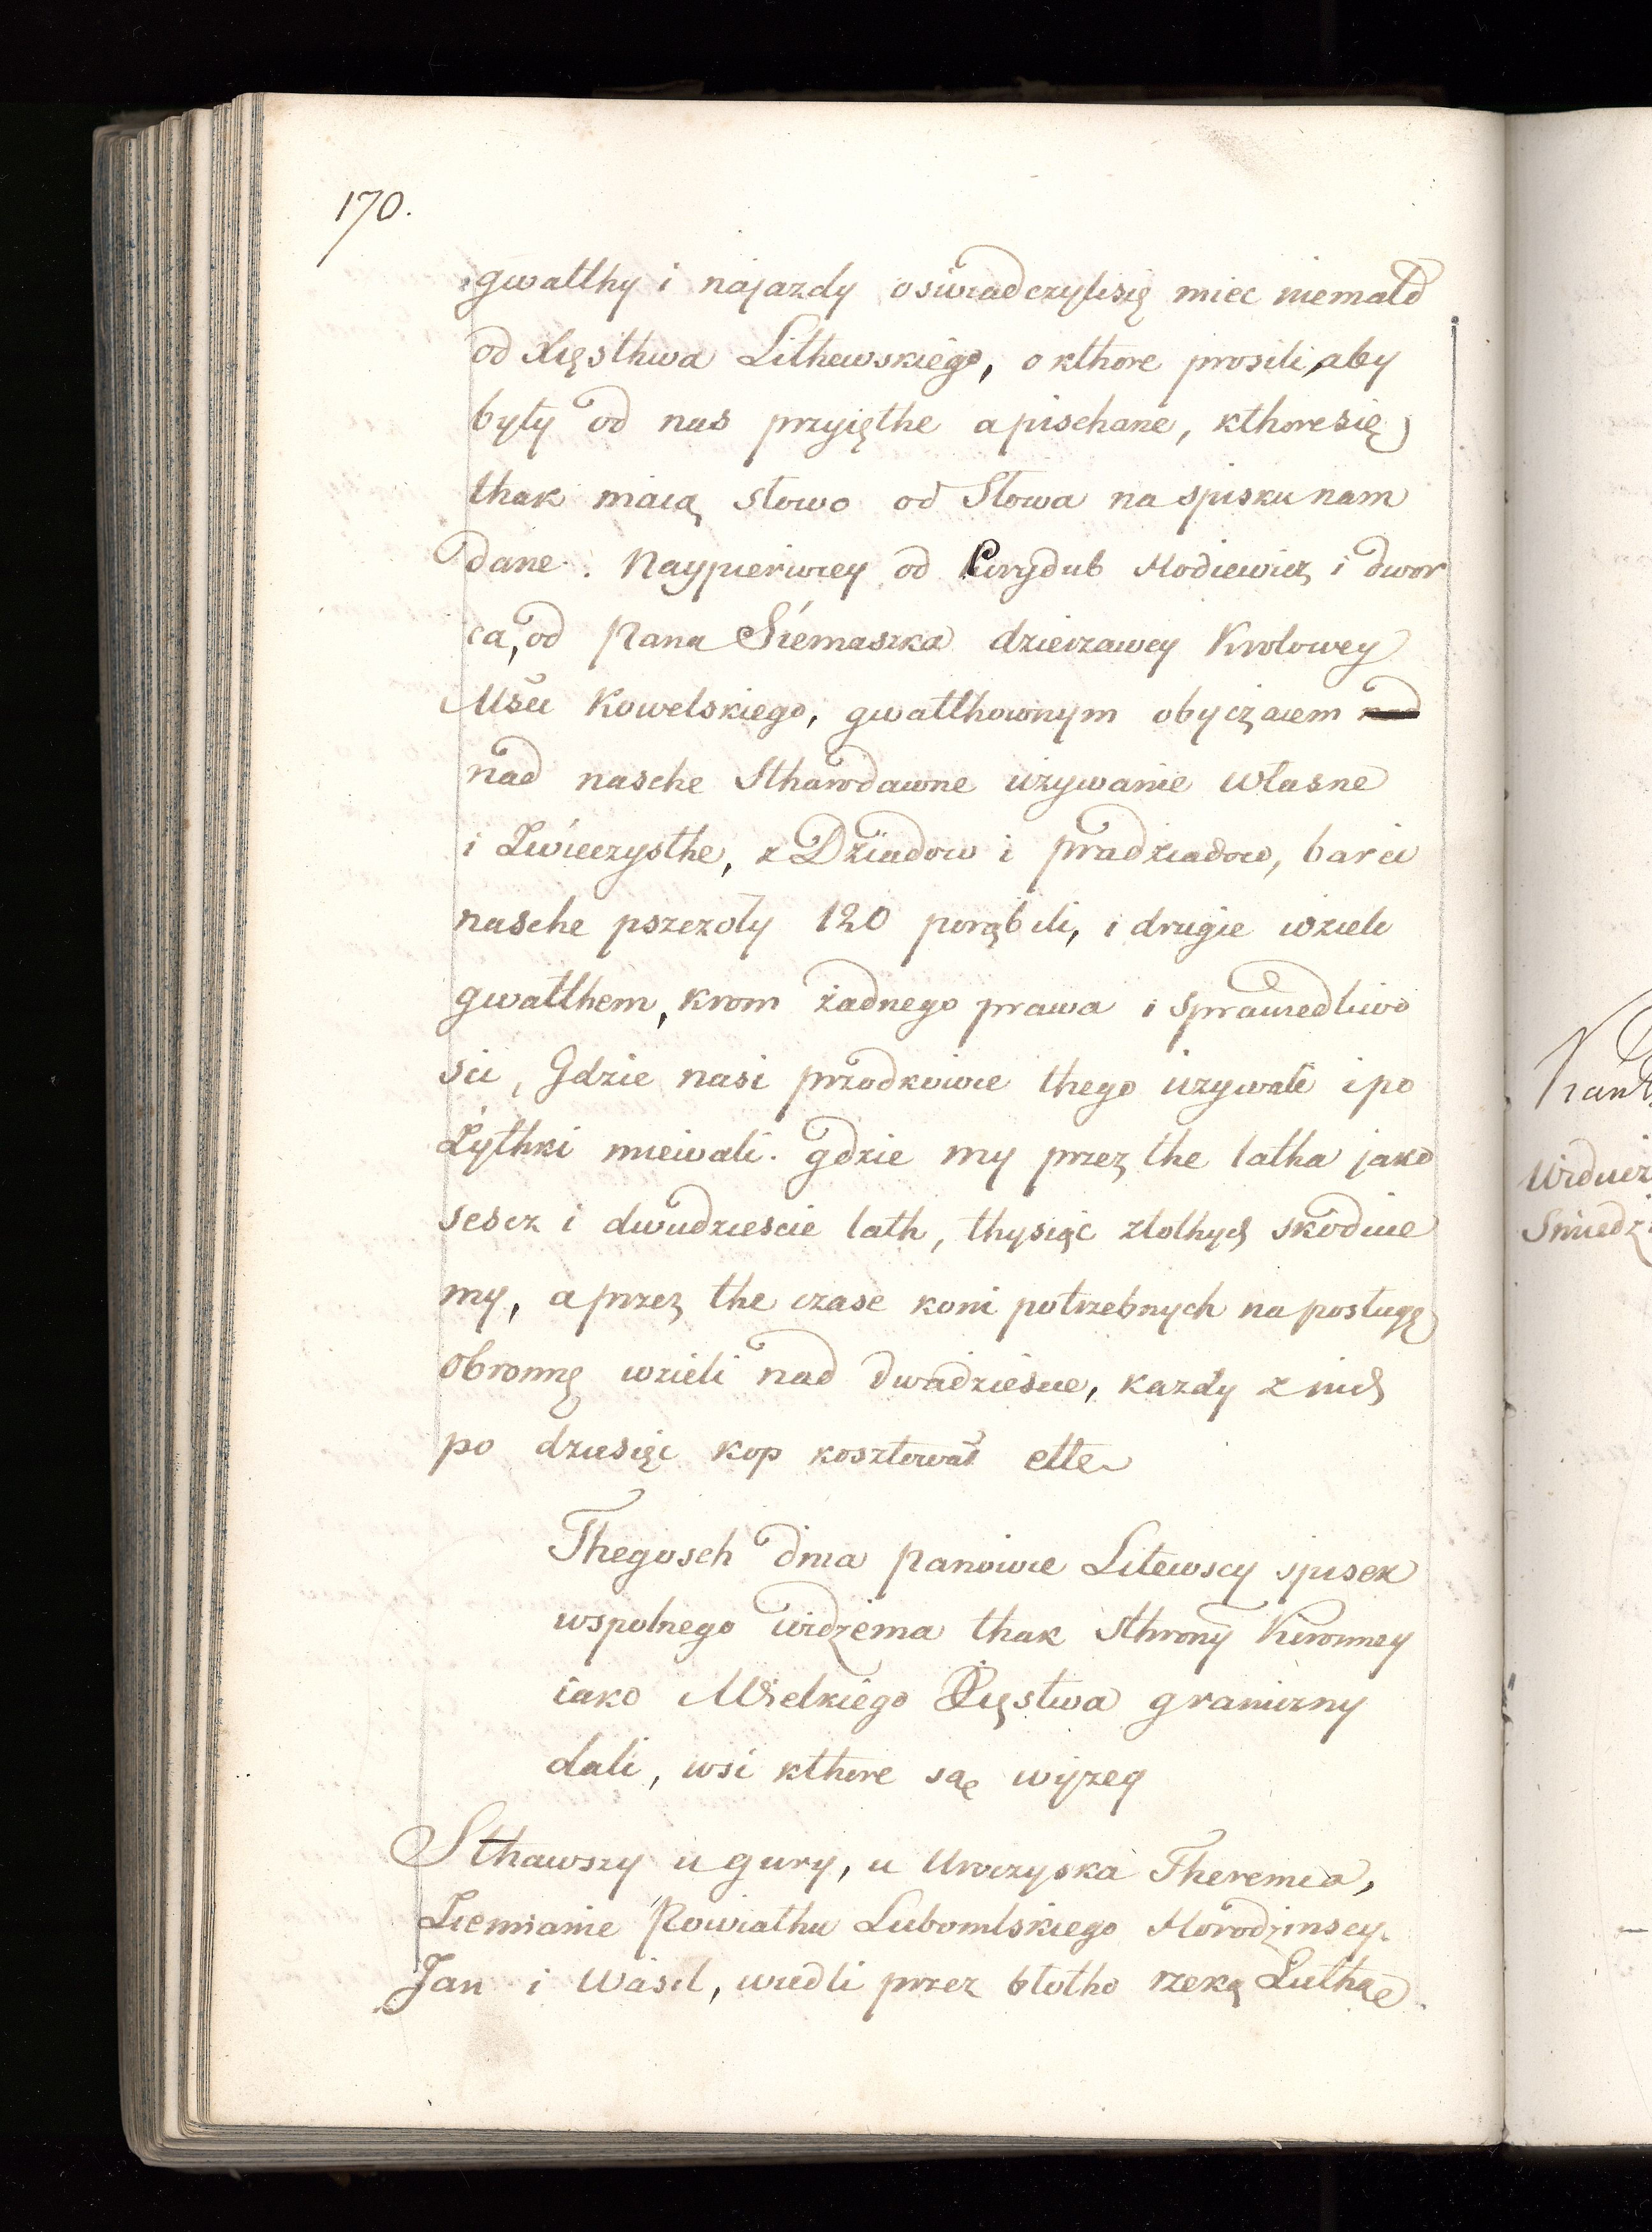 170.
gwałthy i najazdy oswiadczylisię miec niemało
od Xięsthwa Lithewskiego, o kthore prosili, aby
były od nas przyięthe a pischane, kthoresię
thak maią słowo od Słowa na spisku nam
dane. Naypierwiey od Hodiewicz i dwor
ca, od Pana Siemaszka dzierzawcy Krolowey
Msci Kowelskiego, gwałthownym obyczaiem nad
nad nasche Stharodawne używanie własne
i Zwieczysthe, z Dziadow i pradziadow, barci
nasche pszczoły 120 porąbili, i drugie wzieli
gwałthem, krom żadnego prawa i sprawiedliwo
sci, Gdzie nasi przodkowie thego używali i po
Żythki miewali. gdzie my przez the latha jako
sescz i dwudziescie lath, thysiąc złothych skodvie
my, a przez the czase koni potrzebnych na posługę
obronną wzieli nad dwadziescie, kazdy z nich
po dziesięc kop kosztował ette
Thegosch dnia Panowie Litewscy spisek
wspolnego widzenia thak sthrony Kironney
iako Wielkiego Xięstwa graniczny
dali, wsi kthore są wyzey
Sthawszy u gury, u Uroczyska Theremia,
Ziemianie Powiathu Lubomlskiego Horodzinscy.
Jan i Wasil, wiedli przez błotho rzeką Luthąe.